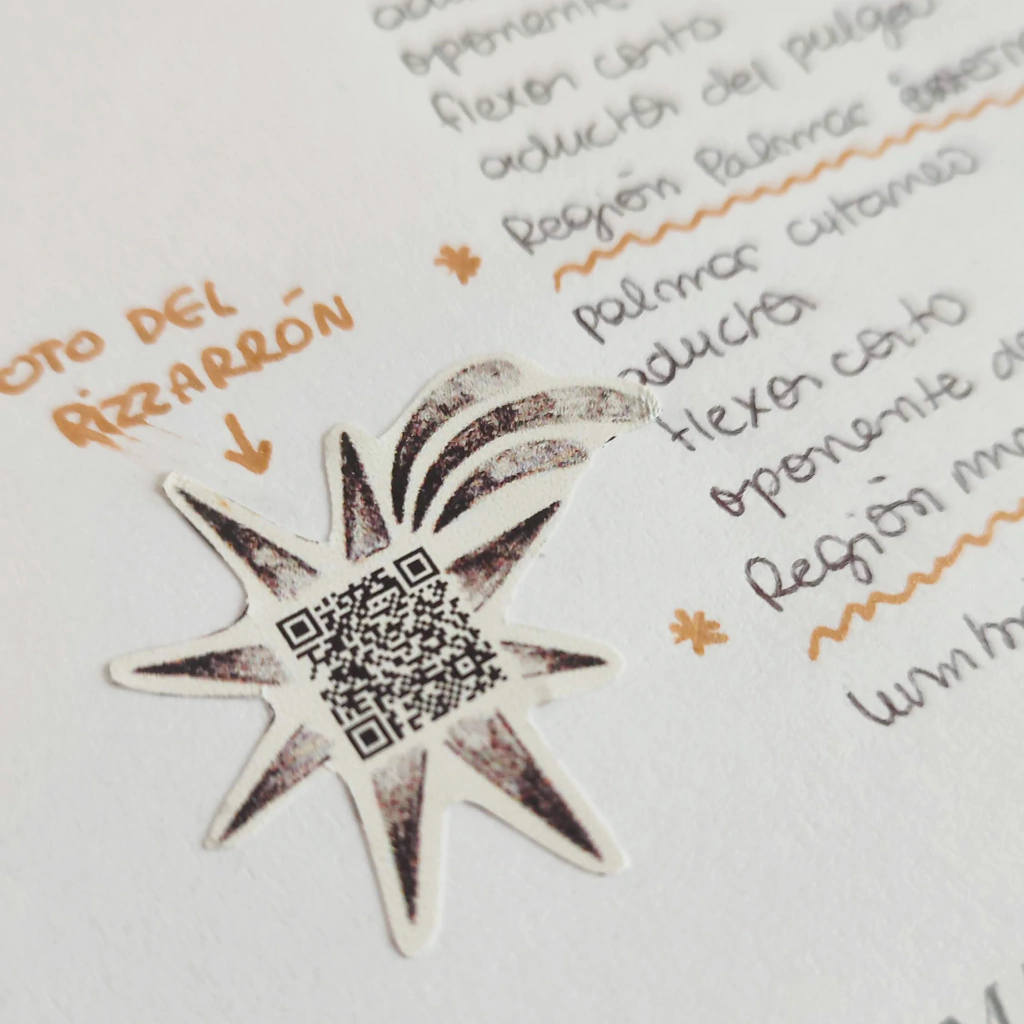 oponente
flexor corto
aductor del pulgar
Región Palmar
palmar cutaneo
aductor
flexor corto
oponente de
Región me
OTO DEL
PIZZARRÓN